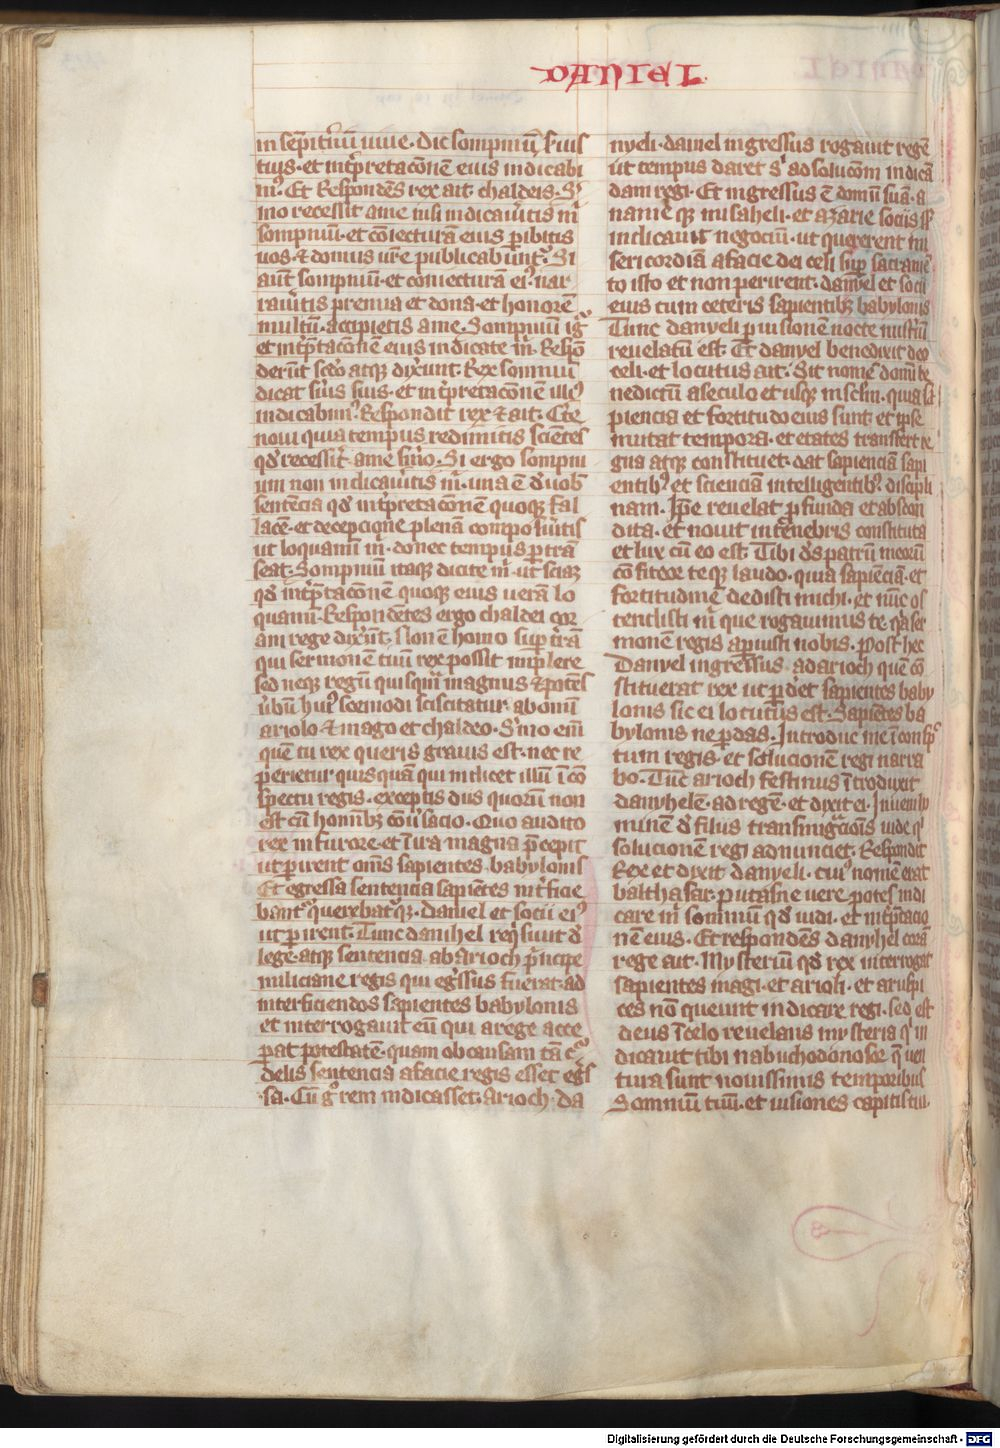 DANIEL
in sempit̄nū uiue. Dic sompniū ẜuis
tuis. et int̄pretac̄onē eius indicabi
m᷒. Et Respondēs rex ait chaldeis. S̄
mo recessit ame nisi indicau̅itis m̄
sompniū. et cōiecturā eius p̱ibitis
uos. ⁊ domus ur̄e publicabūnt᷑. Si
aut̄ sompniū. et coniecturā ei᷒ nar
rau̅itis premia et dona. et honorē
multū. accipietis ame. Sompniū ig̅
et int̄p̱tac̄onē eius indicate m̄. Respō
derūt sc̄do atqꝫ dixerunt. Rex somniū
dicat ẜuis suis. et int̄pretac̄onē illi᷒
indicabim᷒. Respondit rex ⁊ ait. Cte
noui quia tempus redimitis scientes
qd̄ recesserit ame s̄mo. Si ergo sompni
um non indicau̅itis m̄. una ē d̄ uob̄
sentencia qd̄ int̄pretac̄onē quoqꝫ fal
lacē. et decepcione plenam composu̅itis
ut loquam̄ m̄. donec tempus p̱trā
seat. Sompniū itaqꝫ dicite m̄. ut sciaꝫ
qd̄ int̄p̱tac̄onē quoqꝫ eius uerā lo
quami. Respondētes ergo chaldei cor
am rege dixer̄t. Non ē homo sup̱ t̄rā
qui sermonē tuū rex possit implere
sed neqꝫ regū quisqm̄ magnus ⁊ potēs
ūbū hui᷒ scemodi sciscitatur abomī
ariolo ⁊ mago et chaldeo. S̄mo eniī
quē tu rex queris grauis est. nec re
p̱erietur quisquā qui indicet illū ī cō
spectu regis. exceptis diis quorū non
est cū hominibꝫ conūsacio. Quo audito
rex in furore et ī ira magna p̄cepit
ut p̱irent om̄s sapientes babylonis
Et egressa sentencia sapiētes int̄ficie
bant᷑ querebatqꝫ. Daniel et socii ei᷒
ut p̱irent. Tunc danihel req̇siuit d̄
lege. atqꝫ sentencia abarioch p̄ncipe
miliciane regis qui eg̅ssus fuerat. ad
interficiendos sapientes babylonis
et interrogauit eū qui arege acce
p̱at potestatē. quam ob causam tā c̄u
delis sentencia afacie regis esset eg̅s
sa. Cū g̊ rem indicasset. arioch. da
nyeli. daniel ingressus rogauit regē
ut tempus daret s᷑ ad soluc̄om indicā
dam regi. Et ingressus ē domū suā. a
nanie qꝫ misaheli. et azarie sociis ss̄
indicauit negociū. ut quererent mi
sericordiā afacie dei celi sup̱ sacramē
to isto et non perirent. danyel et socii
eius cum ceteris sapientibꝫ babylonis
Tunc danyeli p̱ uisionē nocte mist̄iū
reuelatū est. Et danyel benedixit deo
celi. et locutus ait. Sit nomē domī be
nedictū aseculo et usqꝫ in sc̄lm. quia sa
piencia et fortitudo eius sunt. et ipse
mutat tempora. et etates transfert re
gna atqꝫ constituet. dat sapienciā sapi
entib᷒ et scienciā intelligentib᷒ discipli
nam. Ip̄e reuelat p̱funda et abscon
dita. et nouit in t̄enebris constituta
et lux cū eo est. Tibi d̄s patrū meorū
cōfiteor te qꝫ laudo. quia sapienciā. et
fortitudinē dedisti michi. et nūc os
tendisti m̄ que rogauimus te q̇a ser
monē regis ap̱uisti nobis. Post hec
Danyel ingressus adarioch quē cō
stituerat rex ut p̱det sapientes baby
lonis sic ei locutus est. Sapiētes ba
bylonis ne p̱das. Introduc me ī consp̱c
tum regis. et solucionē regi narra
bo. Tūc arioch festinus ītroduxit
danyhelē. ad regē. et dixit ei. Inueni ho
minē d̄ filiis transmigr̄acōis iude q̇
solucionē regi adnunciet. Respondit
Rex et dixit danyeli. cui᷒ nomē erat
balthasar. putasne uere potes indi
care m̄ somniū qd̄ uidi. et int̄p̱tacio
nē eius. Et respondēs danyhel corā
rege ait. Mysteriū qd̄ rex interrogat
sapientes magi. et arioli. et aruspi
ces nō queunt indicare regi. sed est
deus ī celo reuelans mysteria q̇ in
dicauit tibi nabuchodonosor q̄ uen
tura sunt nouissimis temporibus
Somniū tuū. et uisiones capitis tui.
Digitalisierung gefördert durch die Deutsche Forschungsgemeinschaft - DFG